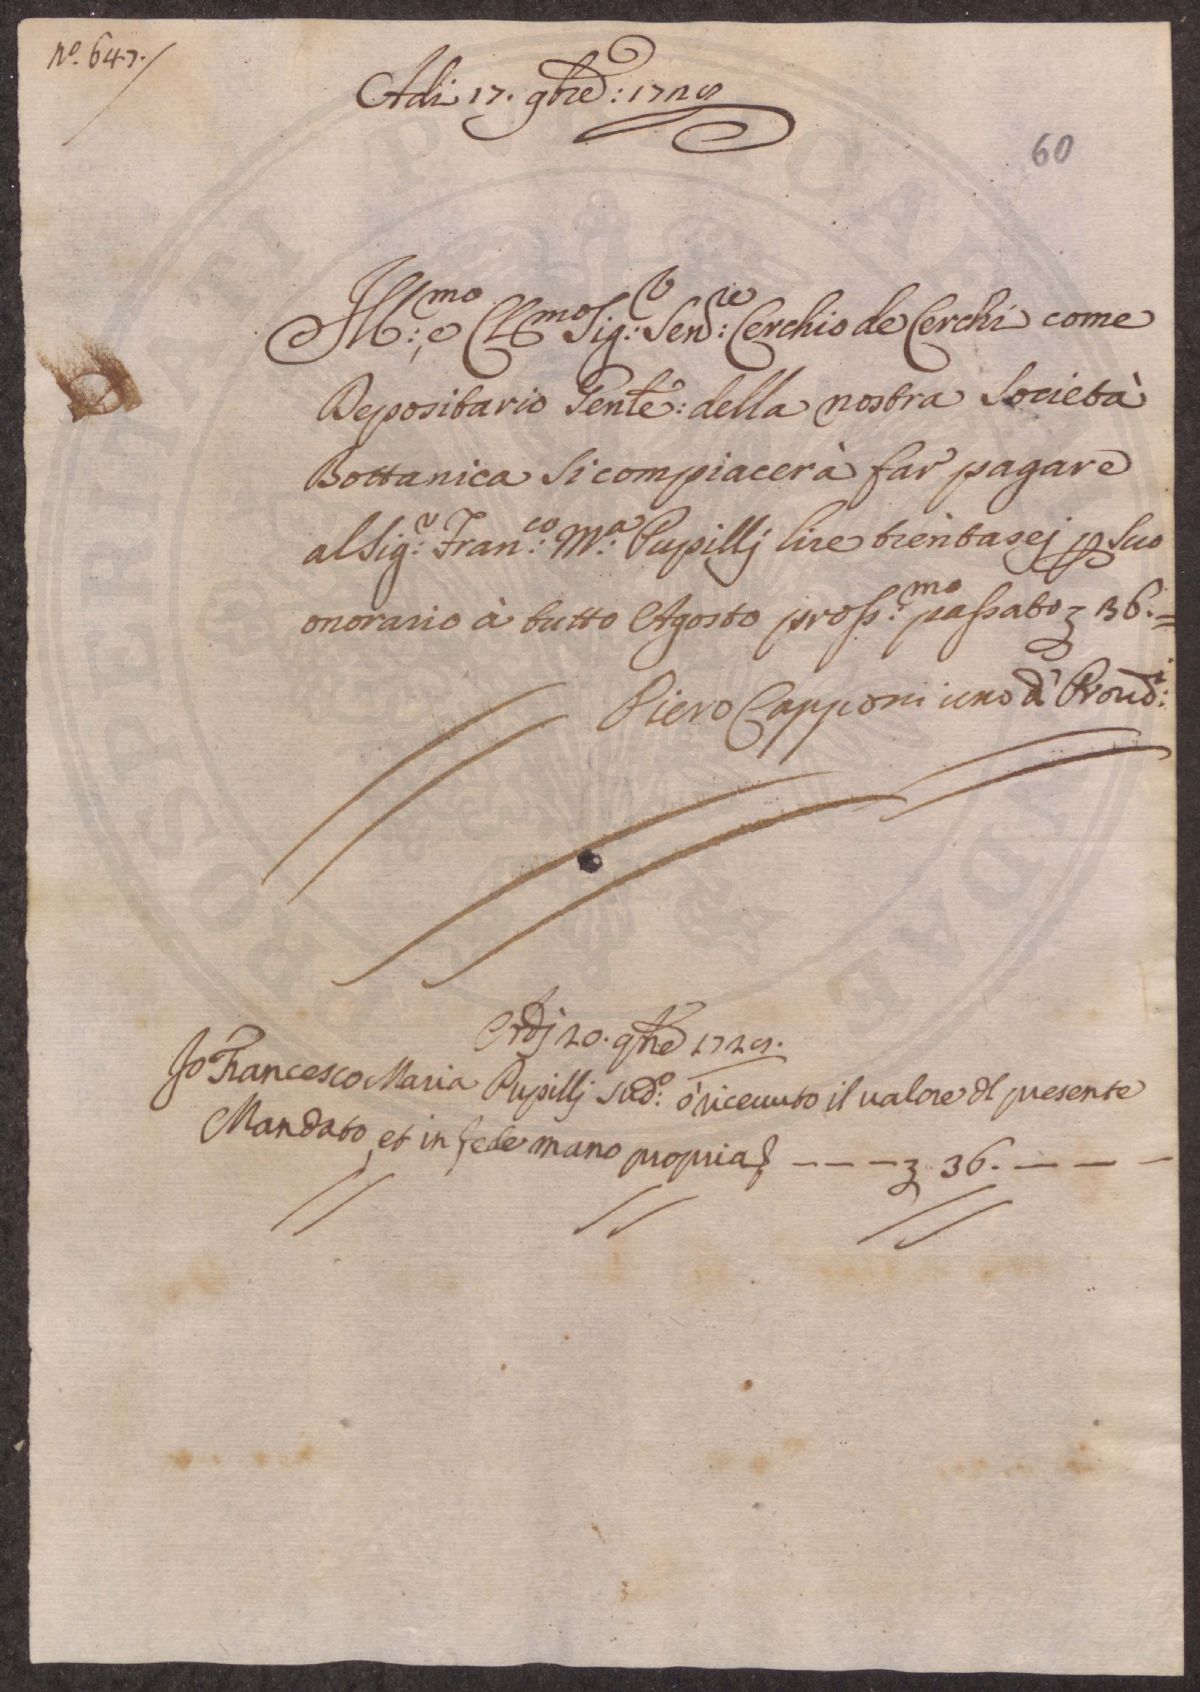 N.º 647.
Adi 17. 9bre: 1725
60
Ill:mo e Cl:mo Sig:r Sen:re Cerchio de Cerchi come
Depositario Gen̄le: della nostra Società
Bottanica si compiacerà far pagare
al Sig:r Fran:co M:a Pupillj lire trentasej p suo
onorario à tutto Agosto pross:mo passato ʒ 36.=
Piero Capponi uno d' Proud:i
Adj 20. 9bre 1725.
Jo Francesco Maria Pupillj sud:o ò riceuuto il ualore dl presente
Mandato, et in fede mano propria ---ʒ 36.---
PROSPERITATI PUBLICAE